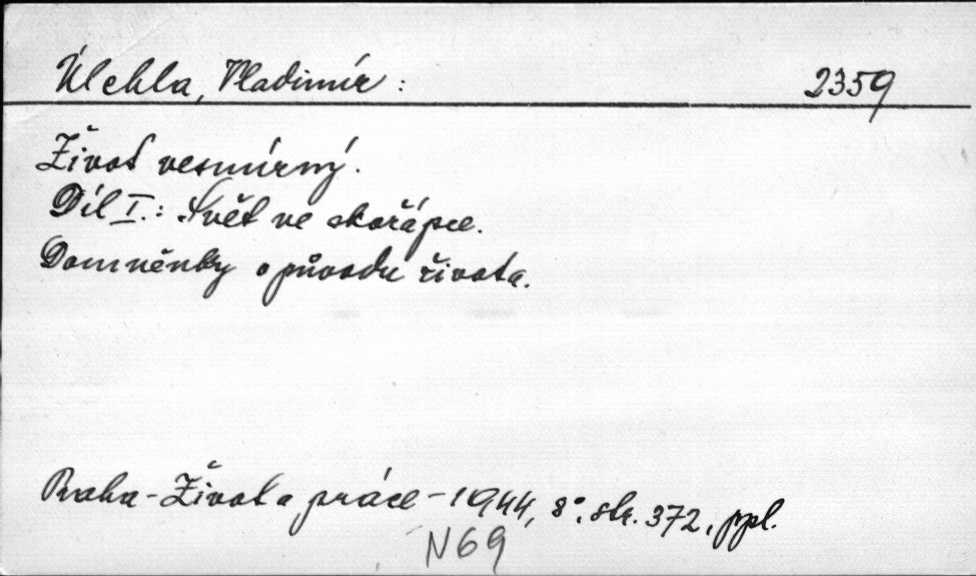 Úlehla, Vladimír : 2359
Život vesmírný.
Díl I.: Svět ve skořápce.
Domněnky o původu života.
Praha - Život a práce - 1944, 8°, str. 372, ppl.
N69